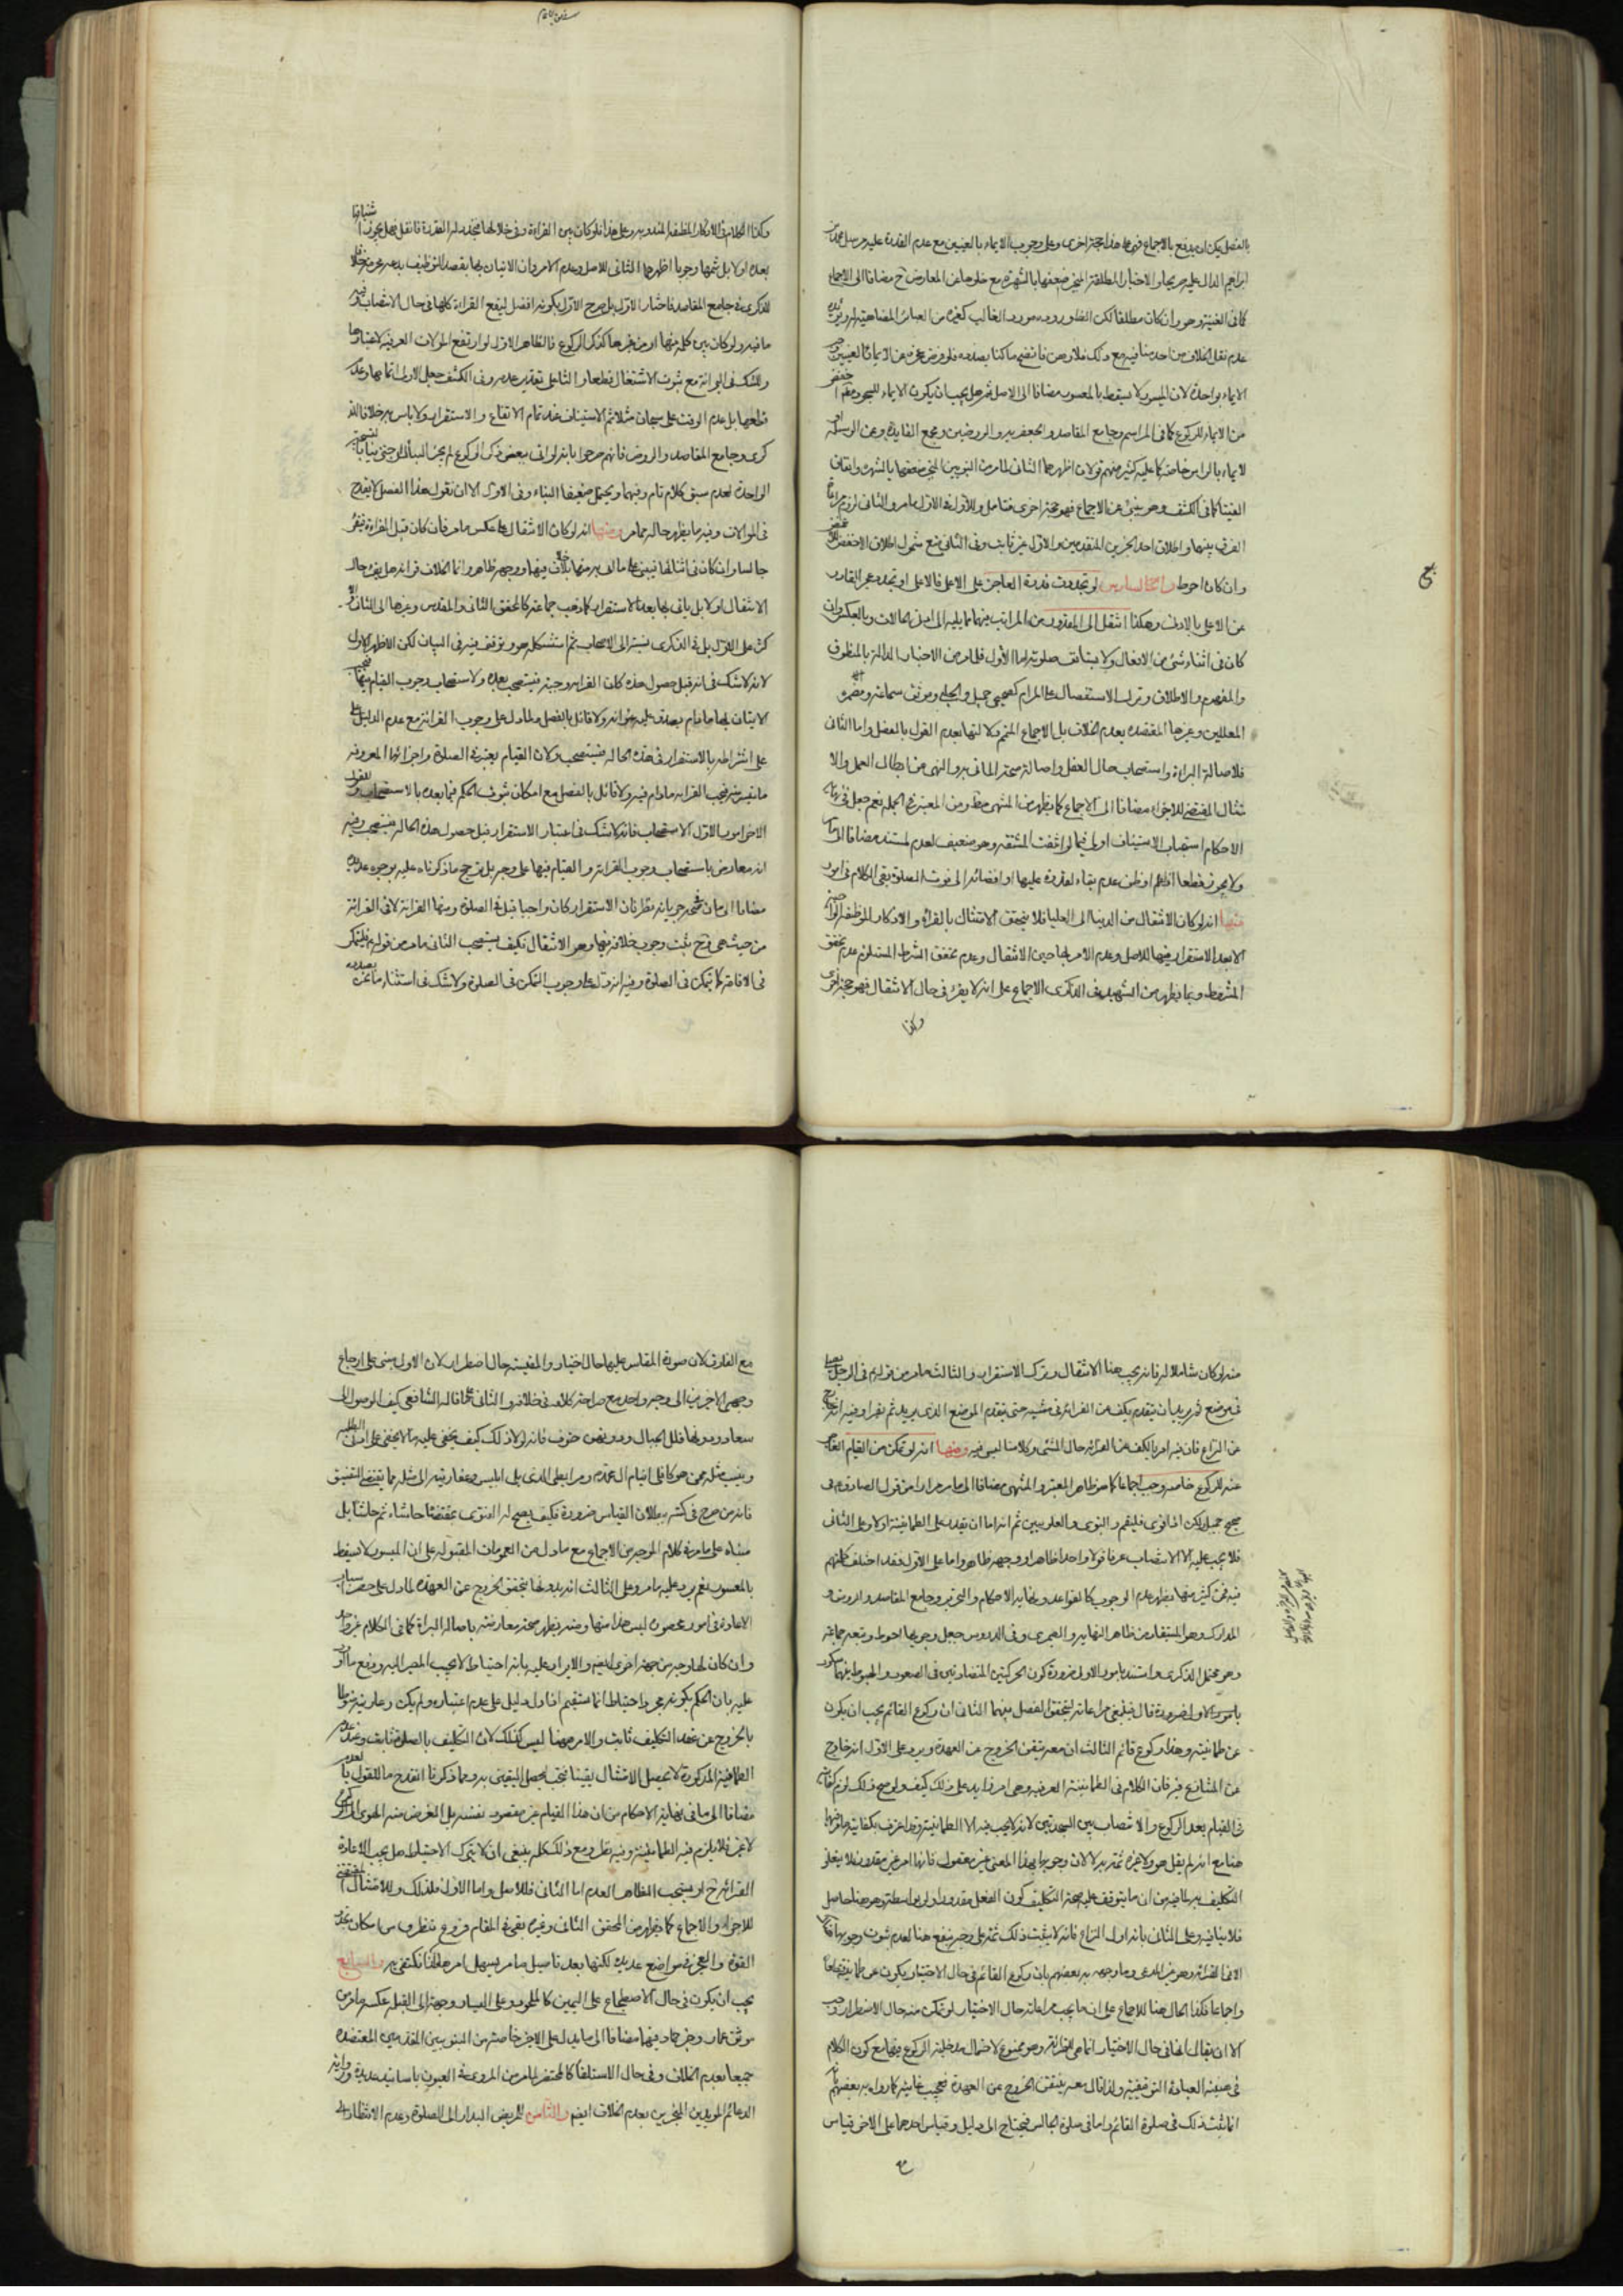 بالفصل يمكن ان يدفع بالاجماع فهو هذا حجة اخرى وعلى وجوب الايماء بالعينين مع عدم القدرة عليه مرسل محمد بن
ابراهيم الدال عليه صريحا والاخبار المطلقة المنجبر ضعفها بالشهرة مع خلوها عن المعارض ح مضافا الى الاجماع
كما في الغنية وهو وان كان مطلقا لكن الظاهر وروده مورد الغالب كغيره من العبائر المضاهية له
عدم نقل الخلاف من احد منا فيه ومع ذلك فلا وهن فاتضح ما كنا بصدده فلو فرض عجزه عن الايماء بالعينين
الايماء بواحدة لان الميسور لا يسقط بالمعسور مضافا الى الاصل ثم هل يجب ان يكون الايماء للسجود اخفض
من الايماء للركوع كما في المراسم وجامع المقاصد والجعفرية والروضين ومجمع الفائدة وعن الوسيلة او
الايماء بالراس خاصة كما عليه كثير منهم قولان اظهرهما الثاني لما مر من النبويين المنجبر ضعفهما بالشهرة واتفاق
الفتيا كما في الكشف وهو ينبئ عن الاجماع فهو حجة اخرى فتامل وللاول في الاول ما مر وللثاني لزوم مراعاة
الفرق بينهما واطلاق احد الخبرين المتقدمين والاول غير ثابت وفي الثاني منع شمول اطلاق الاخفض
وان كان احوط والسادس لو تجددت قدرة العاجز على الاعلى فالاعلى او تجدد عجز القادر
عن الاعلى بالادنى وهكذا انتقل الى المقدور من المراتب منهما مما يليه الى اصل الحالات وبالعكس وان
كان في اثناء شيء من الافعال ولا يستانف صلوته اما الاول فلما مر من الاخبار الدالة بالمنطوق
والمفهوم والاطلاق وترك الاستفصال على المرام كصحيحي جميل والحلبي وموثق سماعة ومضمرة
المعللين وغيرها المعتضدة بعدم الخلاف بل الاجماع المنجم دلالتها بعدم القول بالفصل واما الثاني
فلاصالة البراءة واستصحاب حال العقل واصالة صحة الماتي به والنهي عن ابطال العمل والا
متثال المقتضي للاجزاء مضافا الى الاجماع كما يظهر من المنتهى وظهر من المعتبر في الجملة نعم جعل في نهاية
الاحكام استحباب الاستيناف اولى فيما لو اتفقت المشقة وهو ضعيف لعدم مستنده مضافا الى ما مر
ولا يجوز قطعا اذا علم او ظن عدم بقاء القدرة عليها او افضائه الى فوت الصلوة بقى الكلام في امور
منها انه لو كان الانتقال من الدنيا الى العليا فلا يتحقق الامتثال بالقراءة والاذكار الموظفة
الا بعد الاستقرار فيها للاصل وعدم الامر بها حين الانتقال وعدم تحقق الشرط المستلزم عدم تحقق
المشروط وبما يظهر من الشهيد في الذكرى الاجماع على انه لا يقرء في حال الانتقال فهو حجة اخرى
وكذا
وكذا الكلام في الاذكار الموظفة المندوبة وعلى هذا فلو كان بين القراءة وفي خلالها تجدد له القدرة فانتقل فهل يجوز
بعده او لا بل ثمها وجوبا اظهرهما الثاني للاصل وعدم الامر وان الاتيان بها بقصد التوظيف بدعة محرمة خلافا
للذكرى وجامع المقاصد فاختار الاول بل صرح الاول بكونه افضل ليقع القراءة كلها في حال الانتصاب وفيه
ما فيه ولو كان بين كلمة منها او من غيرها كذكر الركوع فالظاهر الاول لو ارتفع الموالات العرفية لاعتبارها
وللشك في البرائة مع ثبوت الاشتغال قطعا والثاني بتقدير عدمه وفي الكشف جعل الاولى اتمامها وعدم
قطعها بل عدم الوقف على سبحان مثلا ثم الاستيناف عند تمام الارتفاع والاستقرار ولا باس به خلافا للذ
كرى وجامع المقاصد والروض فانهم صرحوا بانه لو اتى ببعض ذكر الركوع لم يجز البناء الا
الواحدة لعدم سبق كلام تام وفيهما ويحتمل ضعيفا البناء وفي الاول الا ان نقول هذا الفصل لا يقدح
في الموالات وفيه ما يظهر حاله مما مر ومنها انه لو كان الانتقال على عكس ما مر فان كان قبل القراءة فيقرء
جالسا وان كان في اثنائها فيبني على ما اتى به منها بلا خلاف فيهما ووجهه ظاهر وانما الخلاف في انه هل يقرء حال
الانتقال او لا بل ياتي بها بعد الاستقرار كما ذهب جماعة كالمحقق الثاني والمقدس وغيرهما الى الثاني والا
كثر على الاول بل في الذكرى نسبته الى الاصحاب ثم استشكله هو وتوقف فيه في البيان لكن الاظهر الاول
لانه لا شك في انه قبل حصول هذه كان القراءة وجبة فيستصحب بعده ولاستصحاب وجوب القيام
الاتيان بها ما دام يصدق عليه عنوانه ولا قائل بالفصل ولما دل على وجوب القرائة مع عدم الدليل
على اشتراطه بالاستقرار في هذه الحالة فيستصحب ولان القيام يعتبر في الصلوة واجزائها المعروفة
ما تيسر فيجب القراءة ما دام فيه ولا قائل بالفصل مع امكان ثبوت الحكم فيما بعده بالاستصحاب
الاخر امور الاول الاستصحاب فانه لا شك في اعتبار الاستقرار قبل حصول هذه الحالة فيستصحب وفيه
انه معارض باستصحاب وجوب القرائة والقيام فيها على وجه بل يرجح ما ذكرناه عليه بوجوه عديدة
مضافا الى ما في صحة جريانه نظر فان الاستقرار كان واجبا قبل في الصلوة ومنها القرائة لا في القرائة
من حيث هي وح يثبت وجوب خلافه فيها وهو الانتقال فكيف يستصحب الثاني ما مر من قوله فليتمكن
في الاقامة كما يتمكن في الصلوة وفيه انه دل على وجوب التمكن في الصلوة ولا شك في استثناء ما نحن بصدده
منه لو كان شاملا له فانه يجب هنا الانتقال وترك الاستقرار والثالث ما مر من قولهم في الرجل يصلي
في موضع ثم يريد ان يتقدم يكف عن القرائة في مشيه حتى يتقدم الموضع الذي يريد ثم يقرا وفيه انه خارج
عن النزاع فان فيه امر بالكف عن القرائة حال المشي وكلامنا ليس فيه ومنها انه لو تمكن من القيام
عنه للركوع خاصة وجب اجماعا كما هو ظاهر المعتبر والمنتهى مضافا الى ما مر مرارا من قول الصادق في
صحيح جميل لكن اذا قوى فليقم والنبوي والعلويين ثم انه اما ان يقدر على الطمانينة او لا وعلى الثاني
فلا يجب عليه الا الانتصاب عرفا قولا واحدا ظاهرا ووجهه ظاهر واما على الاول فقد اختلف كلامهم
فيه فمن كثير منها يظهر عدم الوجوب كالقواعد ونهاية الاحكام والتحرير وجامع المقاصد والروض و
المدارك وهو المستفاد من ظاهر النهاية والصيمري وفي الدروس جعل وجوبها احوط وتبعه جماعة
وهو محتمل الذكرى واستند بامور الاول ضرورة كون الحركتين المتضادتين في الصعود والهبوط بينهما سكون
بامور الاول ضرورة قال فينبغي مراعاته ليتحقق الفصل بينهما الثاني ان ركوع القائم يجب ان يكون
عن طمانينة وهذا ركوع قائم الثالث ان معه يتيقن الخروج عن العهدة ويرد على الاول انه خارج
عن المتنازع فيه فان الكلام في الطمانينة العرفية وهي امر زايد على ذلك كيف ولو صح ذلك لزم كفايته
في القيام بعد الركوع والانتصاب بين السجدتين لانه لا يجب فيه الا الطمانينة وقد اعترف بكفايته ما فيها
هنا مع انه لم يقل هو ولا غيره ثمة به لا لان وجوبها بهذا المعنى غير معقول فانها امر غير مقدور فلا يتعلق
التكليف به لما فيه من ان ما يتوقف عليه صحة التكليف كون الفعل مقدورا ولو بواسطة وهو هنا حاصل
فلا ينافيه وعلى الثاني بانه اول النزاع فانه لا يثبت ذلك ثمة على وجه ينفع هنا لعدم ثبوت وجوبها
الا في القرائة وهو غير المدعى وما وجهه به بعضهم بان ركوع القائم في حال الاختيار يكون عن طمانينة قطعا
واجماعا فكذا الحال هنا للاجماع على ان ما يجب مراعاته حال الاختيار لو تمكن منه حال الاضطرار وجب
الا ان يقال انها في حال الاختيار انما هي للقرائة وهو ممنوع لاحتمال مدخلية الركوع فيها مع كون الكلام
في صيغة العبادة التوقيفية ولذا قال معه يتيقن الخروج عن العهدة فيجب
انما يثبت ذلك في صلوة القائم واما في صلوة الجالس فيحتاج الى دليل وقياس احدهما على الاخر قياس
مع الفارق لان صورة المقاس عليها حال اختيار والمقيسة حال اضطرار لان الاول مبني على ارجاع
وجهي الاخرين الى وجه واحد مع صراحة كلامه في خلافه والثاني كما قاله الشافعي كيف الوصول الى
سعاد ودونها قلل الجبال ودونهن حتوف فانه لا ذلك كيف يخفى عليه ما لا يخفى على ادنى الطلبة
فانه من صرح في كتبه ببطلان القياس ضرورة فكيف يصح له الفتوى بمقتضاه حاشاه ثم حاشاه بل
مبناه على ما مر في كلام الموجه من الاجماع مع ما دل من العمومات المقبولة على ان الميسور لا يسقط
بالمعسور نعم يرد عليه ما مر وعلى الثالث انه بدونها يتحقق الخروج عن العهدة لما دل على حصر اسباب
الاعادة في امور محصورة ليس هذا منها ومنه يظهر صحة معارضته باصالة البراءة كما في الكلام غير واحد
وان كان لها وجه من جهة اخرى ايضا والايراد عليه بانه احتياط لا يجب المصير اليه ودفع ما اورد
عليه بان الحكم بكونه مجرد احتياط انما يستقيم اذا دل دليل على عدم اعتباره ولم يكن رعايته منوطا
بالخروج عن عهدة التكليف ثابت والامر ههنا ليس كذلك لان التكليف بالصلوة ثابت وعند عدم
الطمانينة المذكورة لا يحصل الامتثال يقينا فيجب ليحصل اليقين به ومما ذكرنا انقدح ما للقول بالعدم
مضافا الى ما في نهاية الاحكام من ان هذا القيام غير مقصود بنفسه بل الغرض منه الهوي الى الركوع
لا غير فلا يلزم فيه الطمانينة وفيه نظر ومع ذلك كله ينبغي ان لا يترك الاحتياط وهل يجب الاعادة
القرائة ح او يستحب الظاهر العدم اما الثاني فللاصل واما الاول فلذلك وللامتثال المقتضي
للاجزاء والاجماع كما يظهر من المحقق الثاني وغيره بقى في المقام فروع
القوة والعجز في مواضع عديدة لكنها بعد تاصيل ما مر يسهل امرها فلذا نكتفي به والسابع
يجب ان يكون في حال الاضطجاع على اليمين كالملحود وعلى اليسار وجهه الى القبلة عكسه لما مر من
موثق عمار وخبر حماد فيهما مضافا الى ما يدل على الاخر خاصة من النبويين المتقدمين المعتضدة
جميعا بعدم الخلاف وفي حال الاستلقاء كالمحتضر لما مر من المروي في العيون باسانيد عديدة ورواية
الدعائم المؤيدين المجبرين بعدم الخلاف ايضا والثامن للمريض البدار الى الصلوة وعدم الانتظار